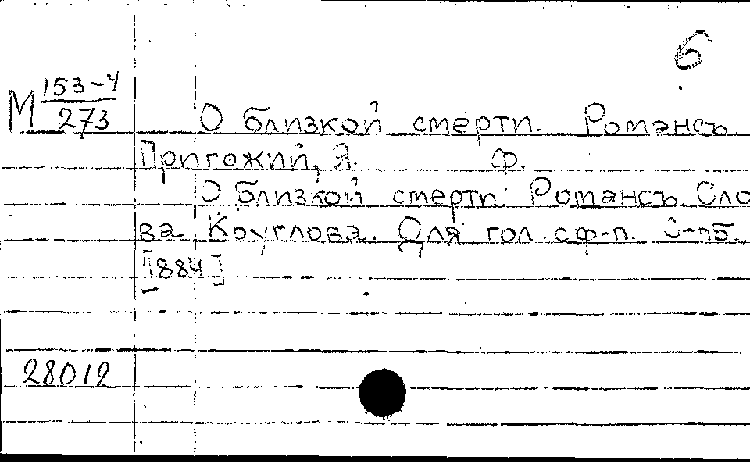 6
М 153-4
273
О близкой смерти. Романсъ
Пригожий, Я. Ф.
О близкой смерти. Романсъ. Сло
ва Круглова. Для гол. с ф-п. С-пб.
[1884]
28012